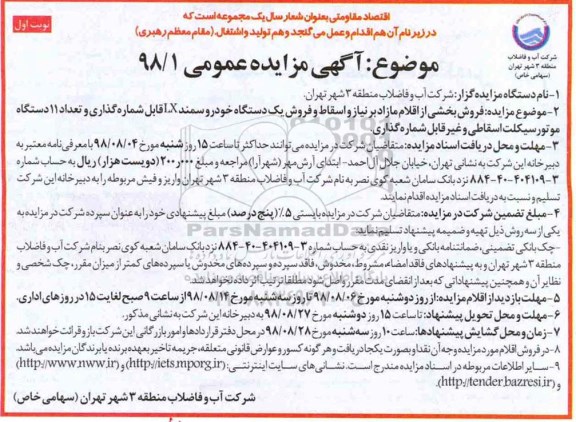 نوبت اول
اقتصاد مقاومتی بعنوان شعار سال یک مجموعه است که
در زیر نام آن هم اقدام و عمل می گنجد و هم تولید و اشتغال. (مقام معظم رهبری)
موضوع: آگهی مزایده عمومی ۹۸/۱
شرکت آب و فاضلاب
منطقه ۳ شهر تهران
(سهامی خاص)
۱- نام دستگاه مزایده گزار: شرکت آب و فاضلاب منطقه ۳ شهر تهران.
۲- موضوع مزایده: فروش بخشی از اقلام مازاد بر نیاز و اسقاط و فروش یک دستگاه خودرو سمند LX قابل شماره گذاری و تعداد ۱۱ دستگاه
موتور سیکلت اسقاطی و غیر قابل شماره گذاری
۳- مهلت و محل دریافت اسناد مزایده: متقاضیان شرکت در مزایده می توانند حداکثر تا ساعت ۱۵ روز شنبه مورخ ۹۸/۰۸/۰۴ با معرفی نامه معتبر به
دبیرخانه این شرکت به نشانی تهران، خیابان جلال آل احمد- ابتدای آرش مهر (شهرآرا) مراجعه و مبلغ ۲۰۰٫۰۰۰ (دویست هزار) ریال به حساب شماره
۳-۴۰۴۱۰۹-۴۰-۸۸۴ نزد بانک سامان شعبه کوی نصر به نام شرکت آب و فاضلاب منطقه ۳ شهر تهران واریز و فیش مربوطه را به دبیرخانه این شرکت
تسلیم و نسبت به دریافت اسناد مزایده اقدام نمایند.
۴- مبلغ تضمین شرکت در مزایده: متقاضیان شرکت در مزایده بایستی ۵٪ (پنج درصد) مبلغ پیشنهادی خود را به عنوان سپرده شرکت در مزایده به
یکی از سه روش ذیل تهیه و ضمیمه پیشنهاد تسلیم نماید.
-چک بانکی تضمینی، ضمانتنامه بانکی و یا واریز نقدی به حساب شماره ۳-۴۰۴۱۰۹-۴۰-۸۸۴ نزد بانک سامان شعبه کوی نصر بنام شرکت آب و فاضلاب
منطقه ۳ شهر تهران و به پیشنهادهای فاقد امضاء، مشروط، مخدوش، فاقد سپرده و سپرده های مخدوش یا سپرده های کمتر از میزان مقرر، چک شخصی و
نظایر آن و همچنین پیشنهاداتی که بعد از انقضای مدت مقرر واصل شود مطلقا ترتیب اثر داده نخواهد شد.
۵- مهلت بازدید از اقلام مزایده: از روز دوشنبه مورخ ۹۸/۰۸/۰۶ تا روز سه شنبه مورخ ۹۸/۰۸/۱۴ از ساعت ۹ صبح لغایت ۱۵ در روزهای اداری.
۶- مهلت و محل تحویل پیشنهاد: تا ساعت ۱۵ روز دوشنبه مورخ ۹۸/۰۸/۲۷ به دبیرخانه این شرکت به نشانی مذکور.
۷- زمان و محل گشایش پیشنهادها: ساعت ۱۰ روز سه شنبه مورخ ۹۸/۰۸/۲۸ در محل دفتر قراردادها و امور بازرگانی این شرکت باز و قرائت خواهند شد.
۸- در فروش اقلام مورد مزایده وجه آن نقدا و بصورت یکجا دریافت و هر گونه کسور و عوارض قانونی متعلقه، جریمه تاخیر بعهده برنده یا برندگان مزایده می باشد.
۹- سایر اطلاعات مربوطه در اسناد مزایده مندرج است. نشانی های سایت اینترنتی: (http://iets.mporg.ir) و (http://www.nww.ir)
و (http://tender.bazresi.ir)
شرکت آب و فاضلاب منطقه ۳ شهر تهران (سهامی خاص)
ParsNamadData